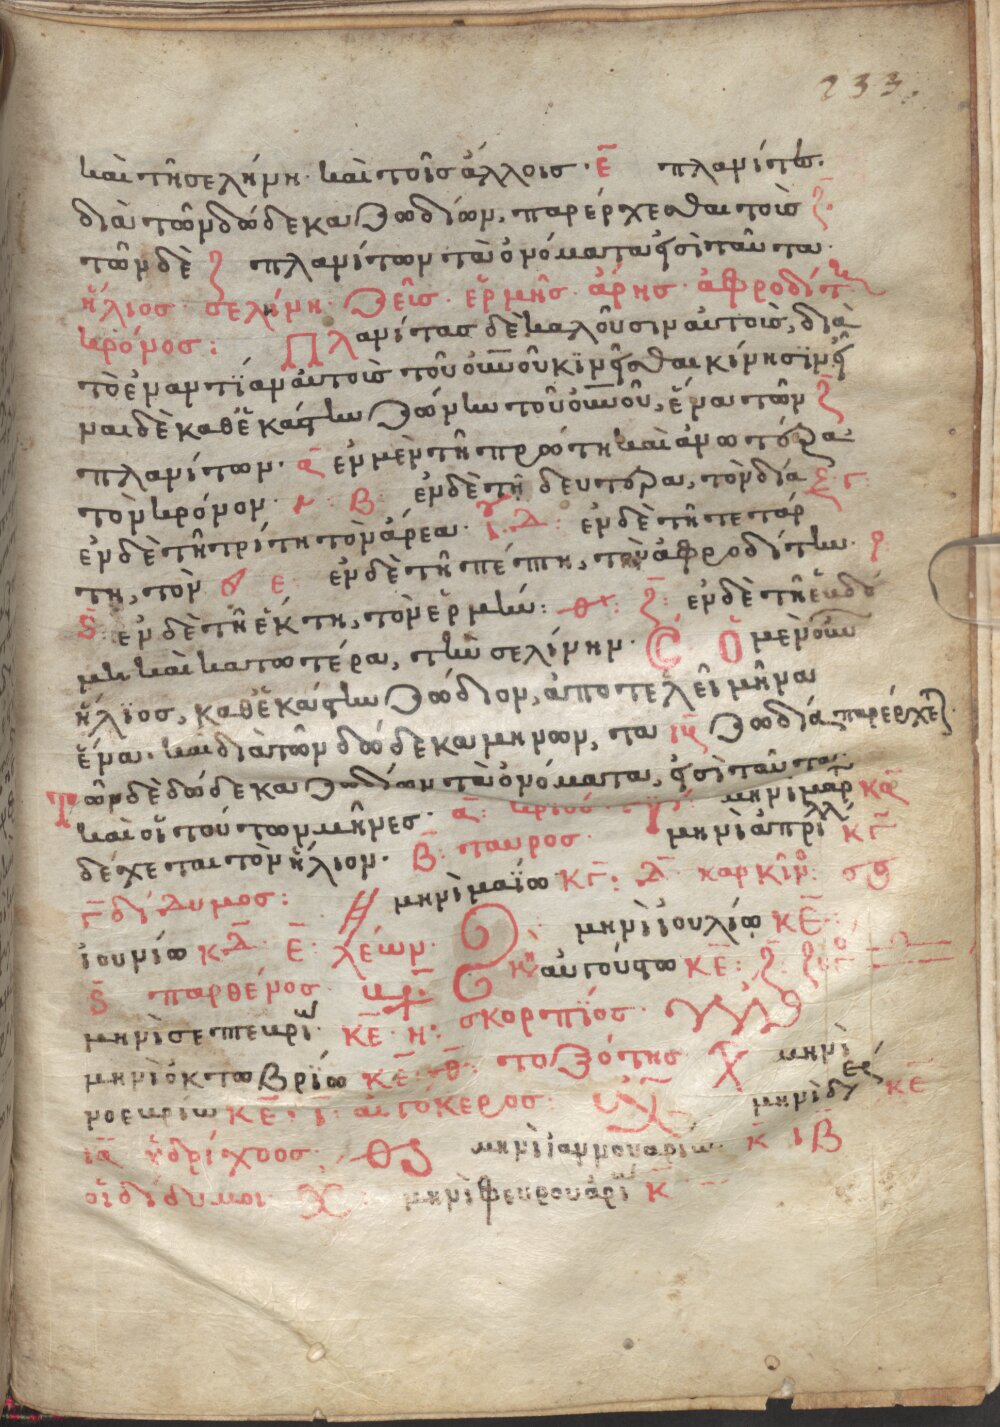 233
καὶ τῆ σελήνη· καὶ τοῖς ἄλλοις· ε̄ πλανίτ(αις)·
διὰ τῶν δώδεκα ζωδίων, παρέρχεσθαι τοὶς ζ̄·
τῶν δὲ ζ πλανίτων τὰ ὀνόματα ἐσὶ ταῦτα·
ἥλιος· σελήνη· ζεῖς· ἑρμῆς· ἄρης· ἀφροδίτη
κρόνος: Πλανίτας δὲ καλοῦσιν αὐτοὶς, διὰ
τὸ ἐναντίαν αὐτοὶς τοῦ οὐνοῦ κινεῖσθαι κίνησϊν· εἶ
ναι δὲ καθ' ἑκάστην ζώνην τοῦ οὐνοῦ, ἕνα τῶν ζ̄
πλανίτων· ᾱ ἐν μὲν τῆ πρώτη καὶ ἀνωτέρα
τὸν κρόνον· β· ἐν δὲ τῆ δευτέρα, τὸν δία γ·
ἐν δὲ τῆ τρίτη τὸν ἄρεα· Δ· ἐν δὲ τῆ τετάρ
τη, τὸν ε· ἐν δὲ τῆ πέπτη, τὴν ἀφροδίτην·
ς̄· ἐν δὲ τῆ ἕκτη, τὸν ἑρμήν: ζ̄· ἐν δὲ τῆ ἑυδό
μη καὶ κατωτέρα, τὴν σελίνην· Ὁ μὲν οὖν
ἥλϊος, καθ' ἑκάστην ζώδιον, ἀποτελεῖ μῆνα
ἕνα· καὶ διὰ τῶν δώδεκα μηνων, τα ιβ̄ ζωδία παρέρχε(ται)
Τῶν δὲ δώδεκα ζωδίων τὰ ὀνόματα, ἐσὶ ταῦτα·
καὶ οἱ τούτων μῆνες· ᾱ· κριός· μηνὶ μαρ κᾱ
δέχεται τὸν ἥλιον· β̄· ταυρος· μηνὶ ἀπριλλί κγ̄
γ̄ δίδυμος: μηνὶ μαϊω κγ̄: Δ̄· καρκῖνο·
ἰουνίω κΔ̄· ε̄· λέων· μηνὶ ἰουλίω κε̄·
ς̄ παρθένος· αυγούστω κε̄: ζ̄· ζυγὸ
μηνὶ σεπτευρί· κε̄· η· σκορπϊός·
μηνὶ ὀκτωβρϊω κε̄· θ̄· τοξότης μηνὶ
νοευρίω κε̄· ῑ· αἰγόκερος· μηνὶ δ κε̄
ιᾱ ὑδρίχοος· μηνὶ ἰαννουαρίω· κ̄ ιβ̄
οἱ δίδυμοι· μηνὶ φευρουάρι κ̄